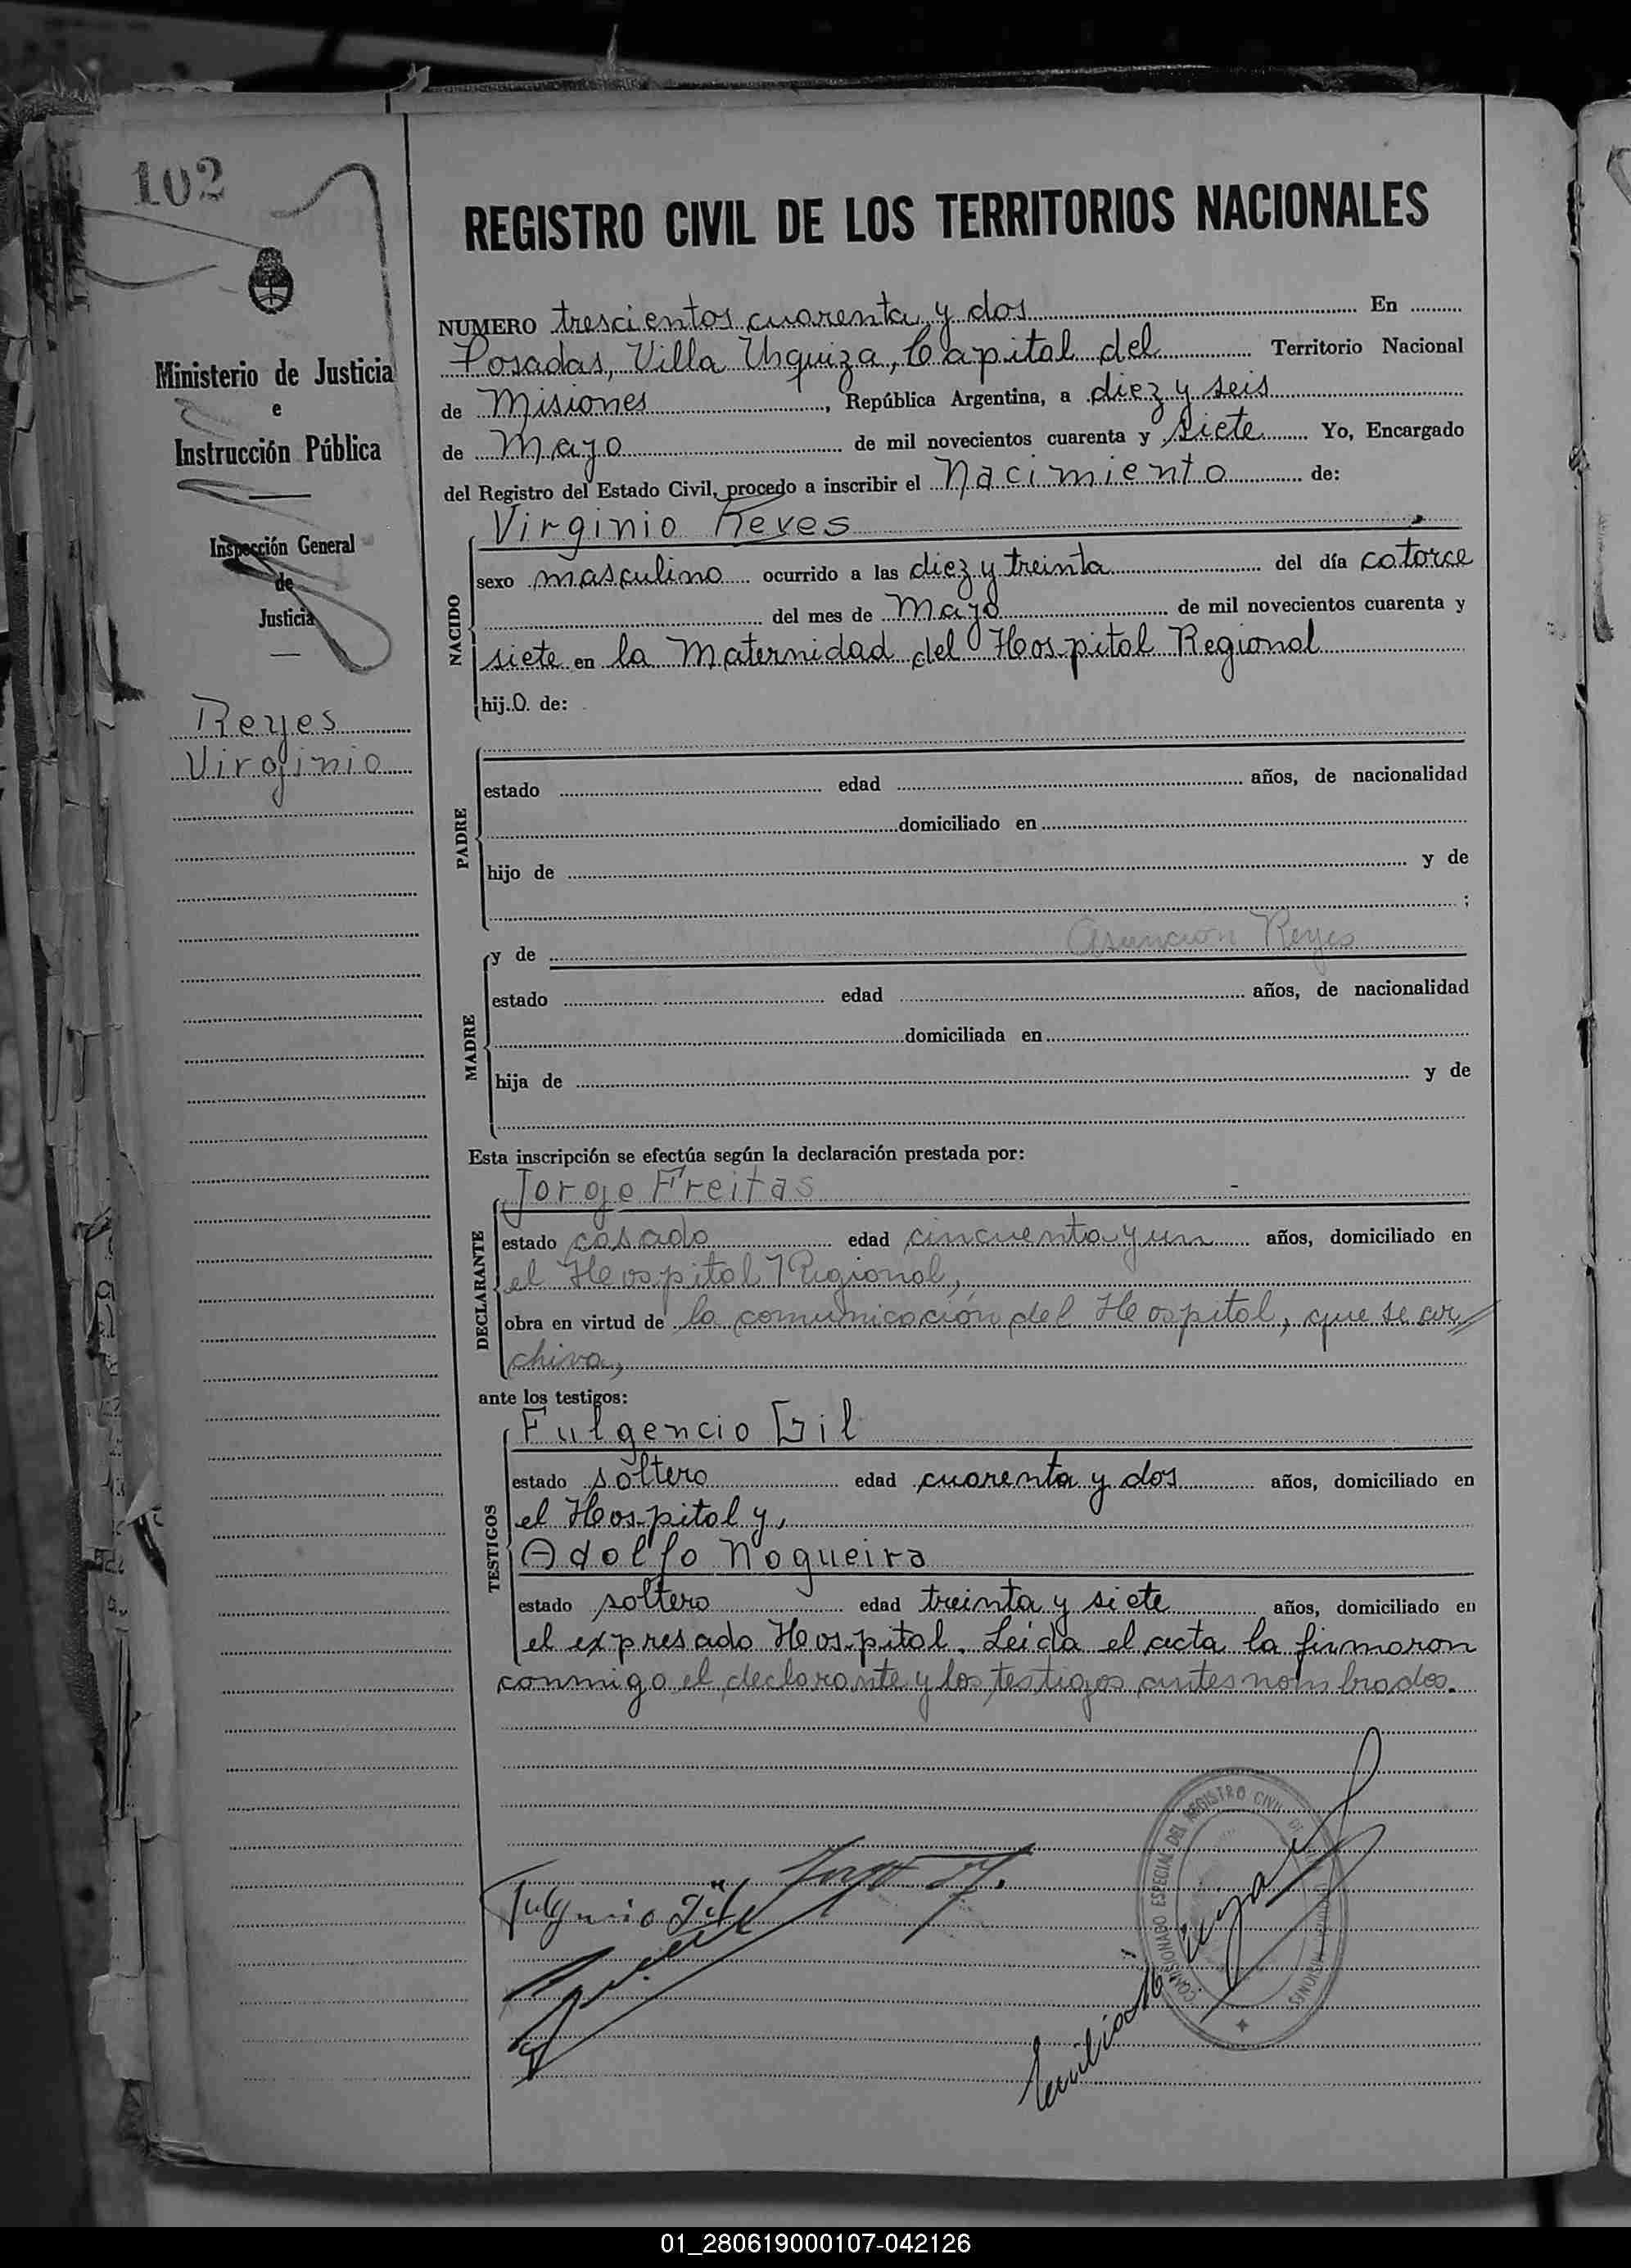 102
REGISTRO CIVIL DE LOS TERRITORIOS NACIONALES
Ministerio de Justicia
e
Instrucción Pública
Inspección General
de
Justicia
Reyes
Virginio
NUMERO trescientos cuarenta y dos En
Posadas, Villa Urquiza, Capital del Territorio Nacional
de Misiones, República Argentina, a diez y seis
de Mayo de mil novecientos cuarenta y siete Yo, Encargado
del Registro del Estado Civil, procedo a inscribir el Nacimiento de:
NACIDO
Virginio Reyes
sexo masculino ocurrido a las diez y treinta del día catorce
del mes de Mayo de mil novecientos cuarenta y
siete en la Maternidad del Hospital Regional
hij.o. de:
PADRE
estado edad años, de nacionalidad
domiciliado en
hijo de y de
;
MADRE
y de Asunción Reyes
estado edad años, de nacionalidad
domiciliada en
hija de y de
Esta inscripción se efectúa según la declaración prestada por:
DECLARANTE
Jorge Freitas
estado casado edad cincuenta y un años, domiciliado en
el Hospital Regional,
obra en virtud de la comunicación del Hospital, que se ar
chiva,
ante los testigos:
TESTIGOS
Fulgencio Gil
estado soltero edad cuarenta y dos años, domiciliado en
el Hospital y,
Adolfo Nogueira
estado soltero edad treinta y siete años, domiciliado en
el expresado Hospital. Leida el acta la firmaron
conmigo el declarante y los testigos antes nombrados.
COMISIONADO ESPECIAL DEL REGISTRO CIVIL
MISIONES
Fulgencio Gil
01_280619000107-042126